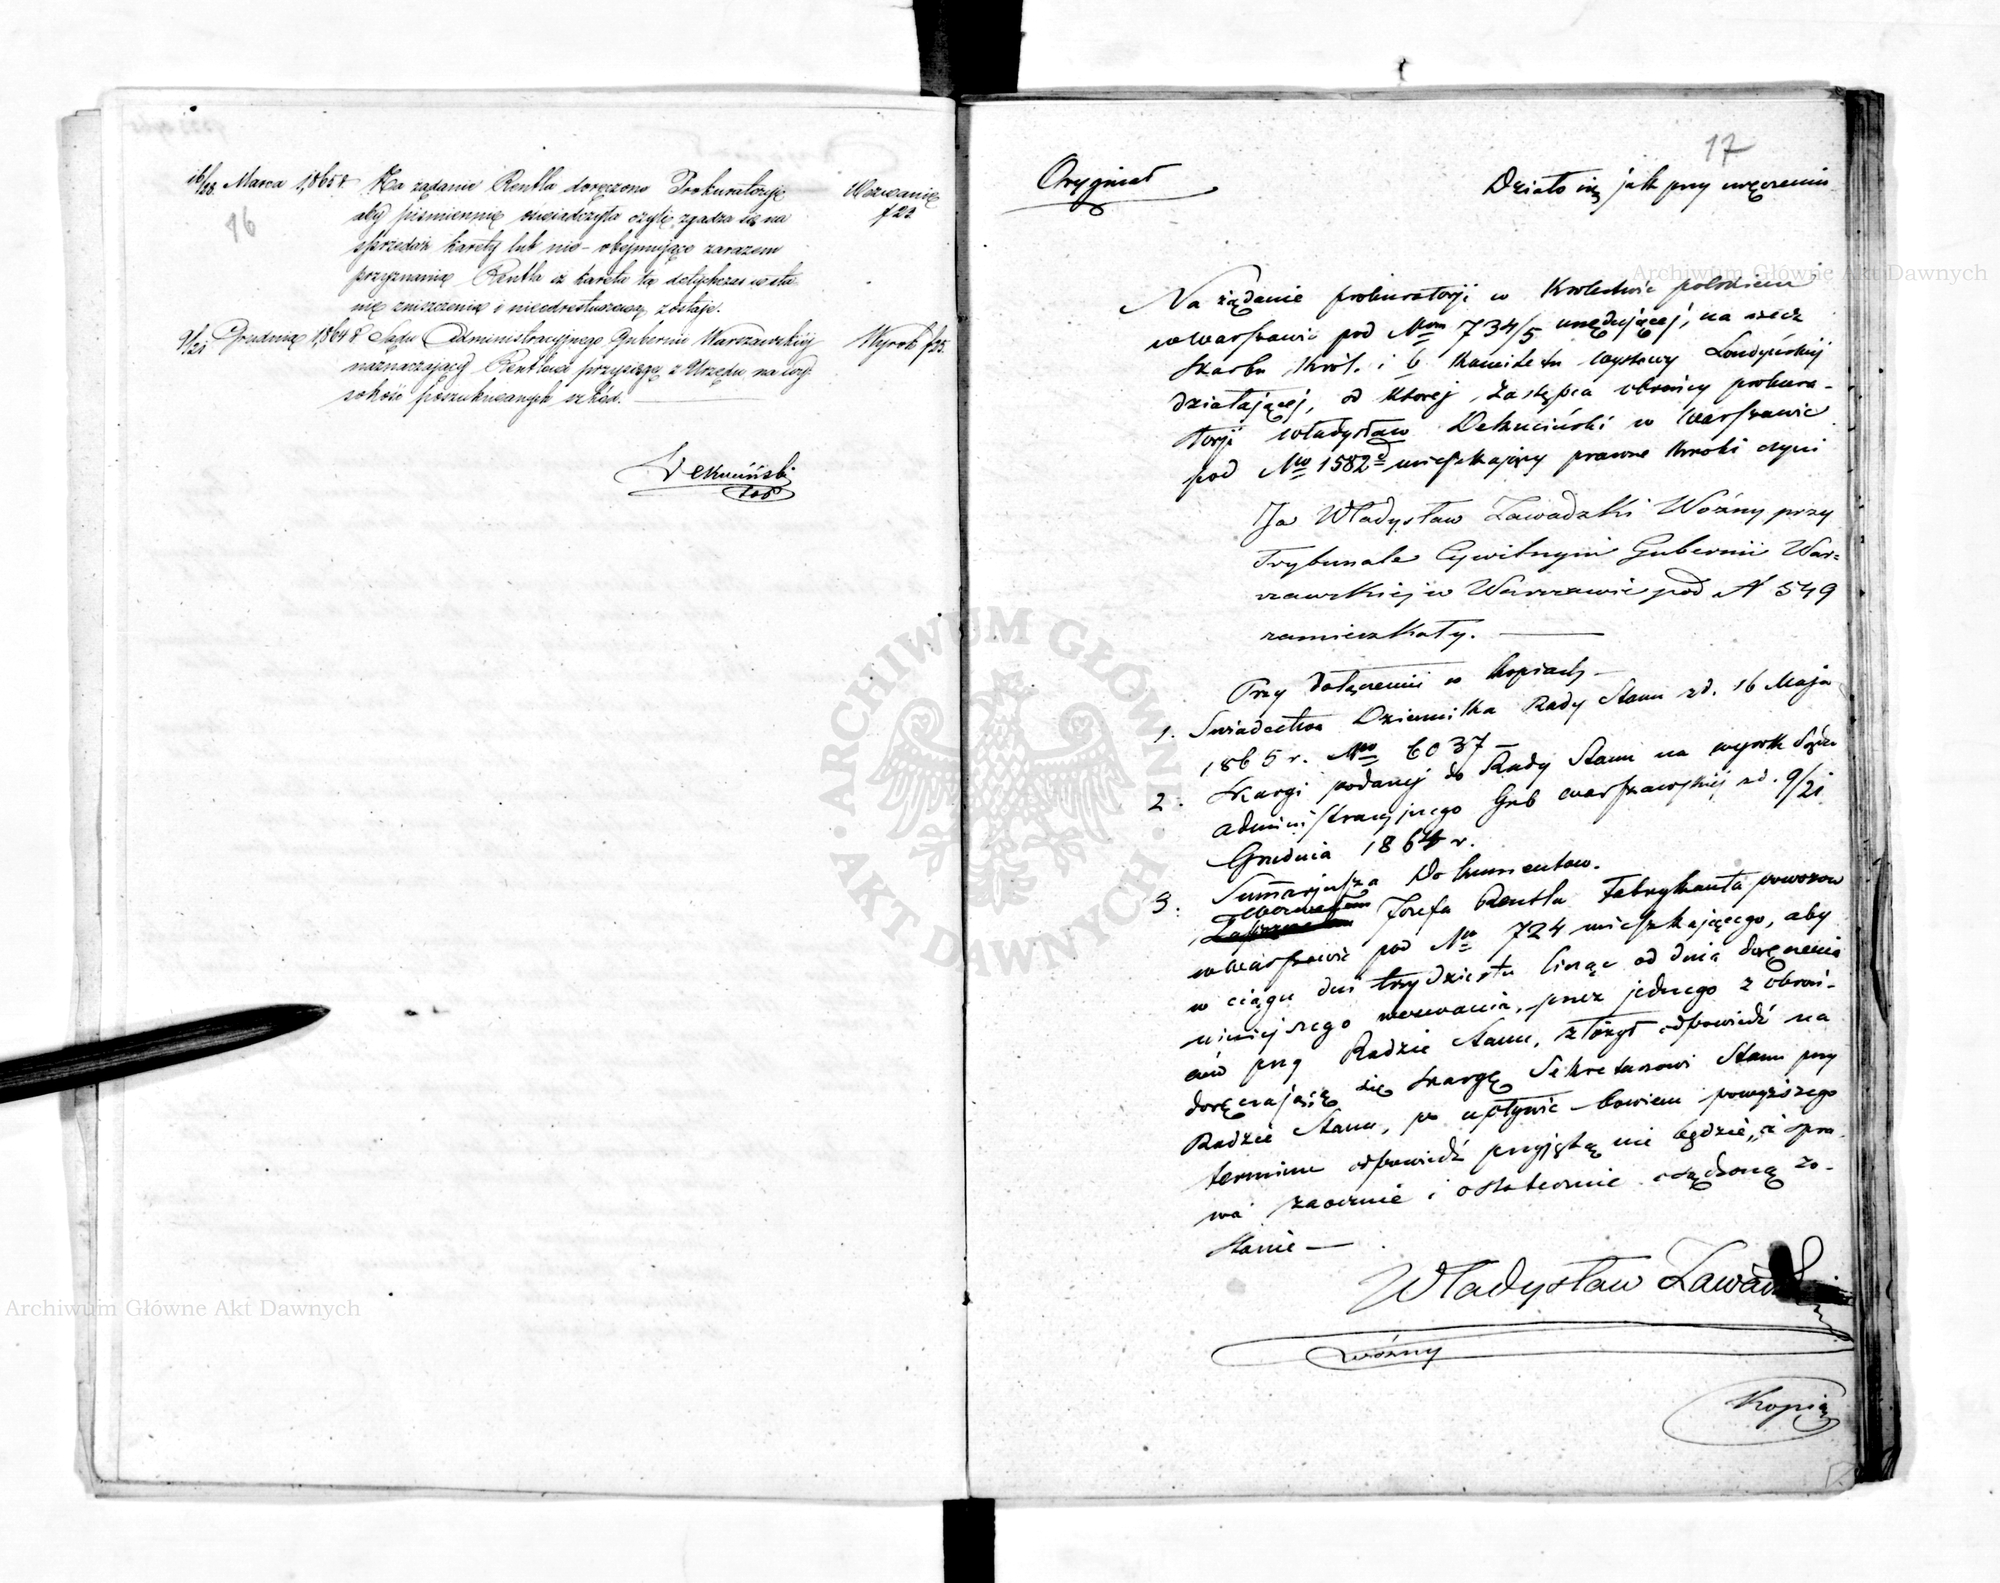 16/28. Marca 1865 r. Na żądanie Rentla doręczono Prokuratoryę Wezwanie
aby piśmiennię oświadczyła czyli zgadza się na f 22
16
sprzedaż karety lub nie – obejmujące zarazem
przyznanię Rentla iż kareta ta dotychczas w sta
nię zniszczenia i niedostuzową zostaje.
9/21 Grudnia 1864 r Sądu Administracyjnego Gubernii Warszawskiej Wyrok f 25.
naznaczający Rentlowi przysięgę z Urzędu na wy
sokość poszukiwanych szkód.
Dekuciński
Archiwum Główne Akt Dawnych
17
Oryginał
Działo się jak przy wręczeniu
Archiwum Główne Akt Dawnych
Na żądanie prokuratorji w Królestwie polskiem
w Warszawie pod Nrem 734/5 urzędującej, na rzecz
Skarbu Król. i b Komitetu wystawy Londyńskiej
działającej, od której zastępca obrońcy prokura-
torji Władysław Dekuciński w Warszawie
pod No 1582 d mieszkający prawne kroki czyni
Ja Władysław Zawadzki Woźny przy
Trybunale Cywilnym Gubernii War-
szawskiej w Warszawie pod N 549
zamieszkały.
Przy dołączeniu w kopiach
1. Świadectwa Dziennika Rady Stanu z d. 16 Maja
1865 r. No 6037
2. Skargi podanej do Rady Stanu na wyrok Sądu
administracyjnego Gub Warszawskiej z d. 9/21
Grudnia 1864 r.
3. Summarjusza Dokumentow.
Wezwałem Jozefa Rentla Fabrykanta powozow
w Warszawie pod No 724 mieszkającego, aby
w ciągu dni trzydziestu licząc od dnia doręczenia
niniejszego wezwania, przez jednego z obroń-
ców przy Radzie Stanu, złożył odpowiedź na
doręczającą się skargę Sekretarzowi Stanu przy
Radzie Stanu, po upływie bowiem powyższego
terminu odpowiedź przyjętą nie będzie, a spra
wa zaocznie i ostatecznie osądzoną zo-
stanie
Władysław Zawadzki
woźny
Kopią
ARCHIWUM GŁÓWNE AKT DAWNYCH